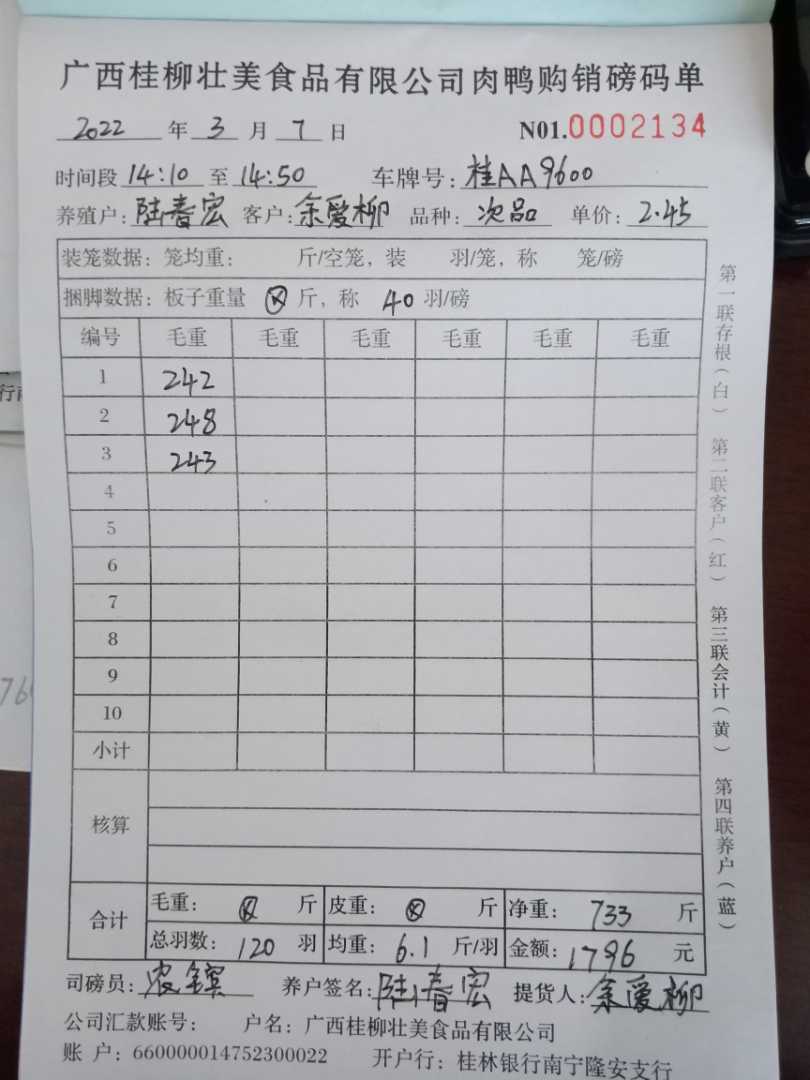 广西桂柳壮美食品有限公司肉鸭购销磅码单
2022 年 3 月 7 日 N01.0002134
时间段 14:10 至 14:50 车牌号: 桂AA9600
养殖户: 陆春宏 客户: 余爱柳 品种: 次品 单价: 2.45
装笼数据: 笼均重: 斤/空笼, 装 羽/笼, 称 笼/磅
捆脚数据: 板子重量 ⊗ 斤, 称 40 羽/磅
编号 毛重 毛重 毛重 毛重 毛重 毛重
1 242
2 248
3 243
4
5
6
7
8
9
10
小计
核算
合计
毛重: ⊗ 斤 皮重: ⊗ 斤 净重: 733 斤
总羽数: 120 羽 均重: 6.1 斤/羽 金额: 1796 元
司磅员: 养户签名: 陆春宏 提货人: 余爱柳
公司汇款账号: 户名: 广西桂柳壮美食品有限公司
账 户: 660000014752300022 开户行: 桂林银行南宁隆安支行
第一联存根(白) 第二联客户(红) 第三联会计(黄) 第四联养户(蓝)